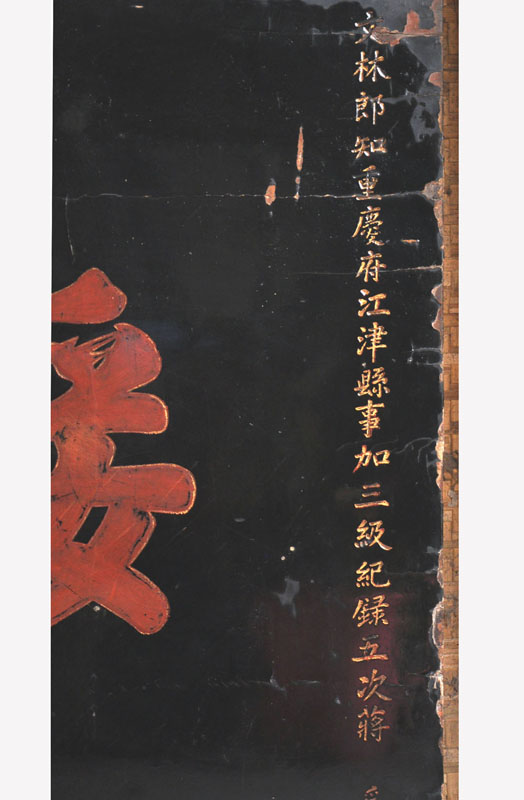 文林郎知重慶府江津縣事加三級紀録五次蔣